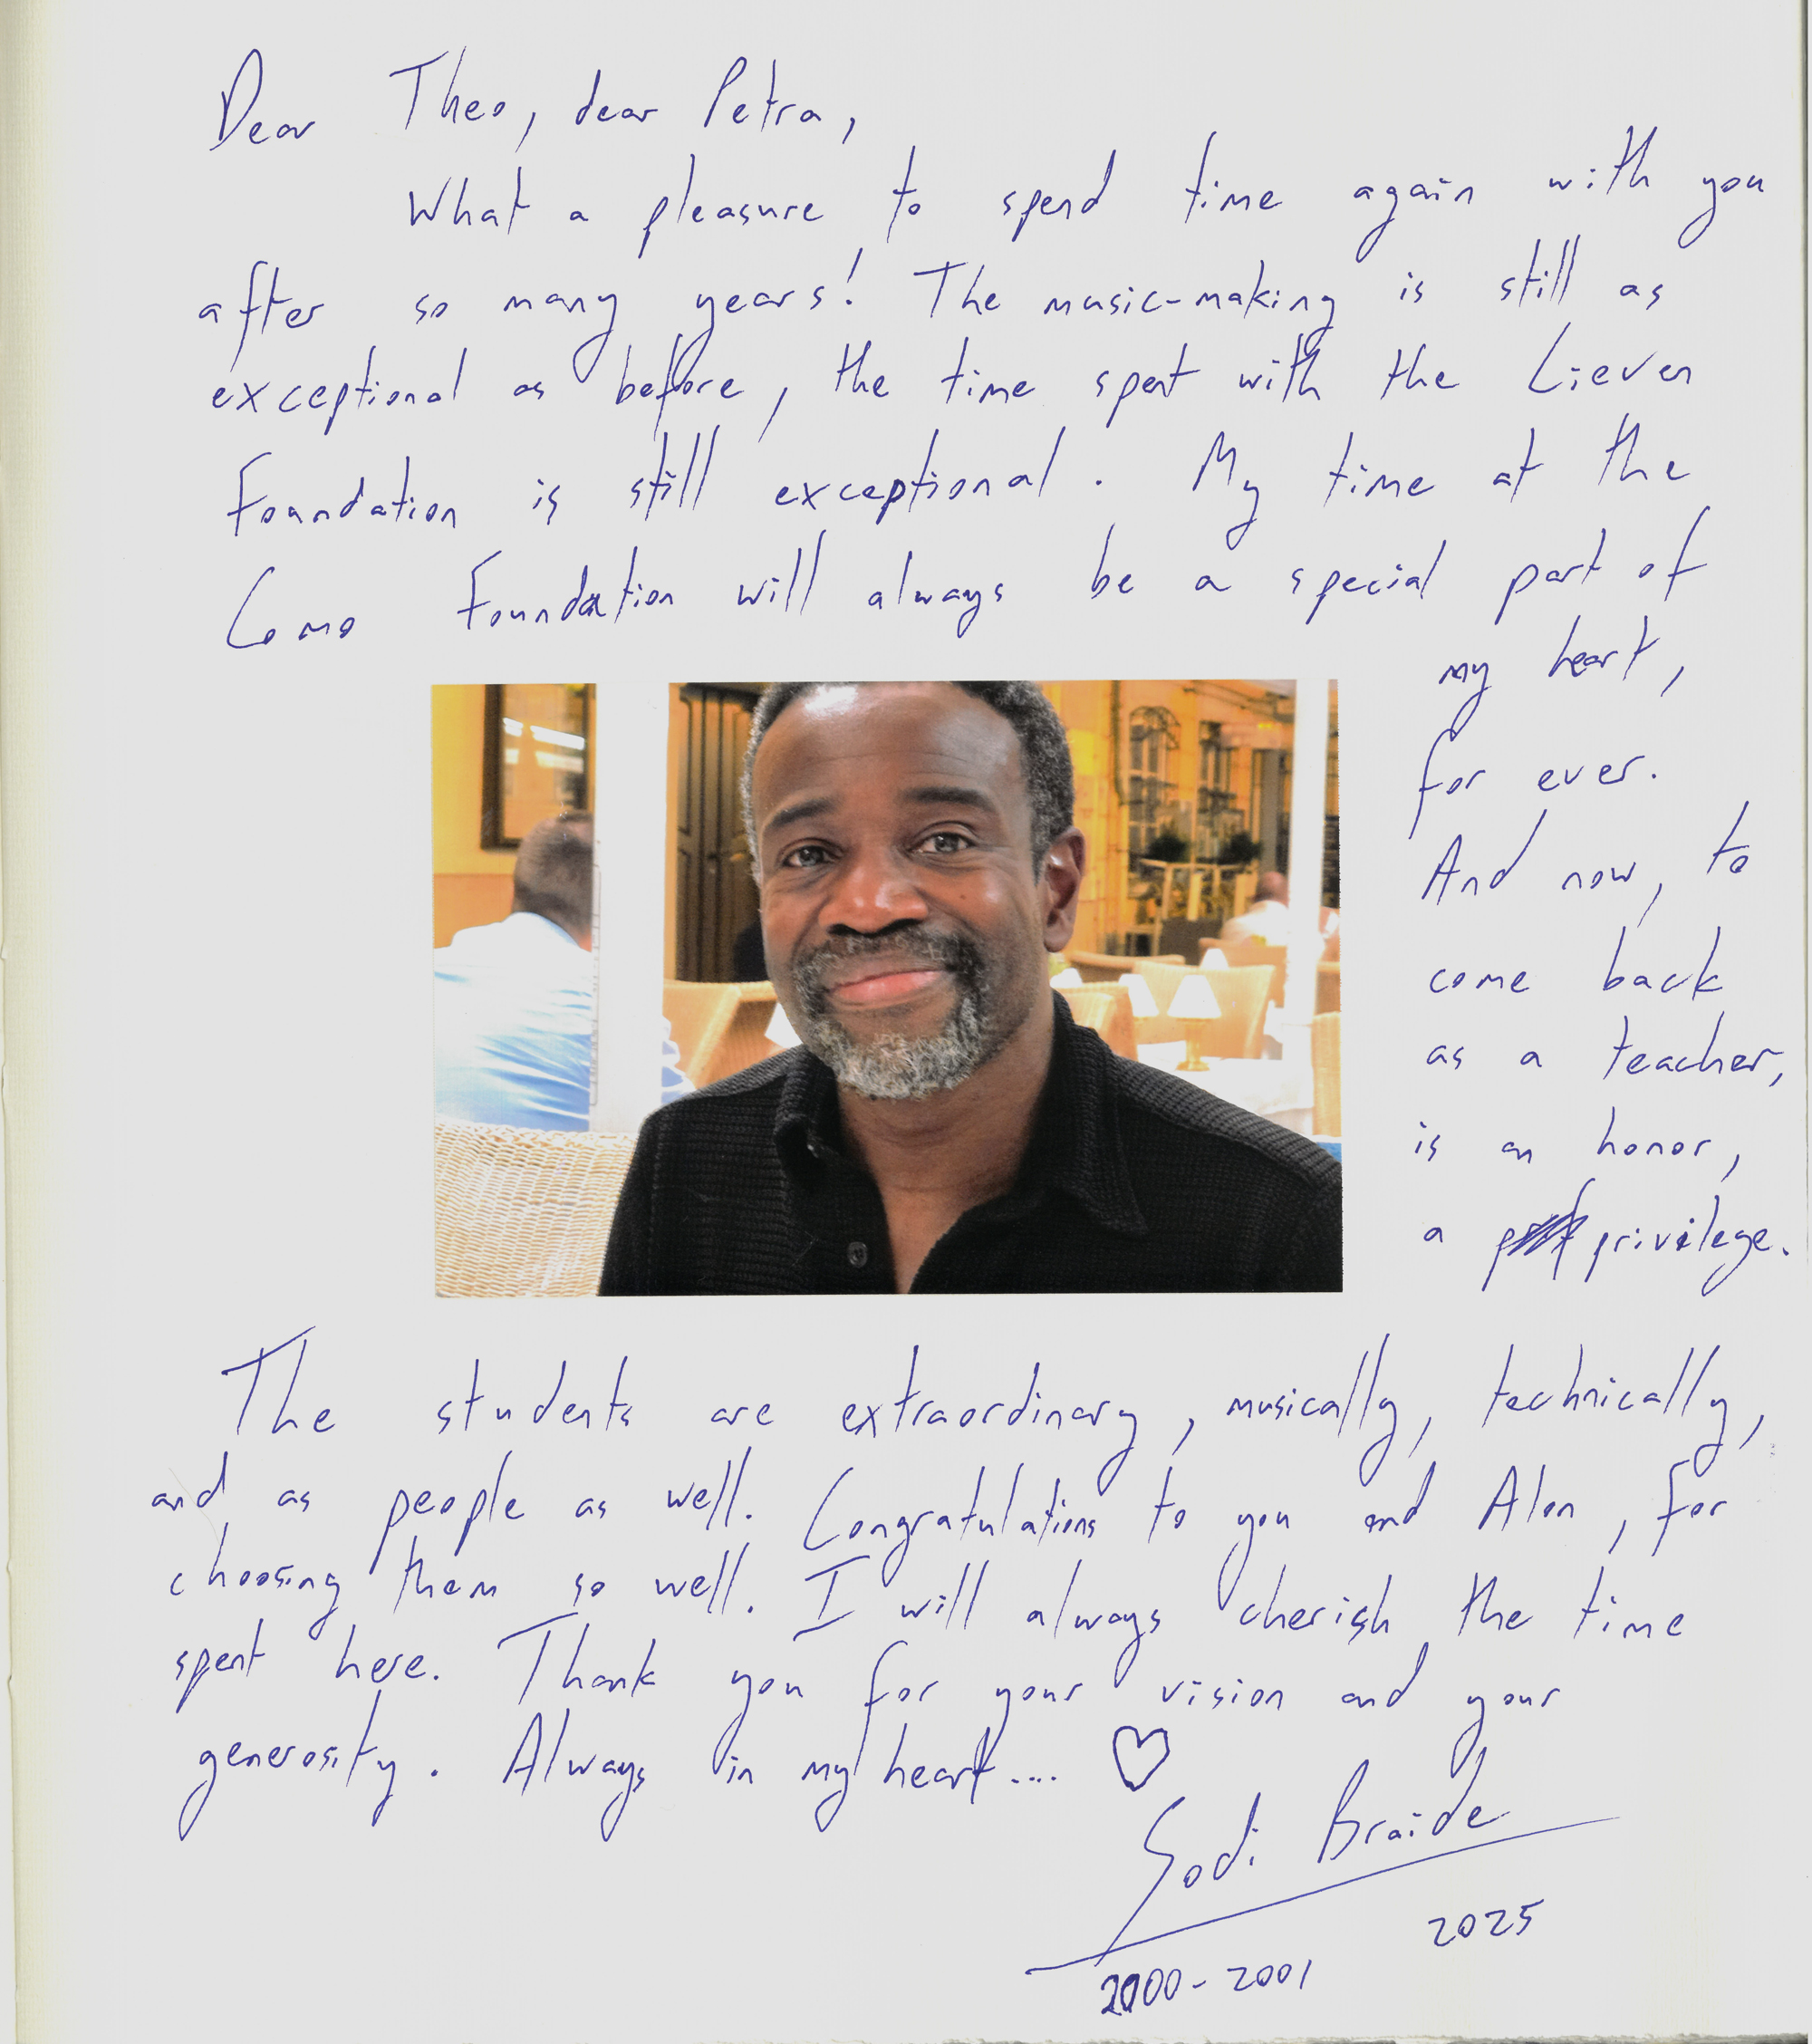 Dear Theo, dear Petra,
What a pleasure to spend time again with you
after so many years! The music-making is still as
exceptional as before, the time spent with the Lieven
Foundation is still exceptional. My time at the
Como Foundation will always be a special part of
my heart,
for ever.
And now, to
come back
as a teacher,
is an honor,
a privilege.
The students are extraordinary, musically, technically,
and as people as well. Congratulations to you and Alon, for
choosing them so well. I will always cherish the time
spent here. Thank you for your vision and your
generosity. Always in my heart....
Sodi Braide
2025
2000-2001